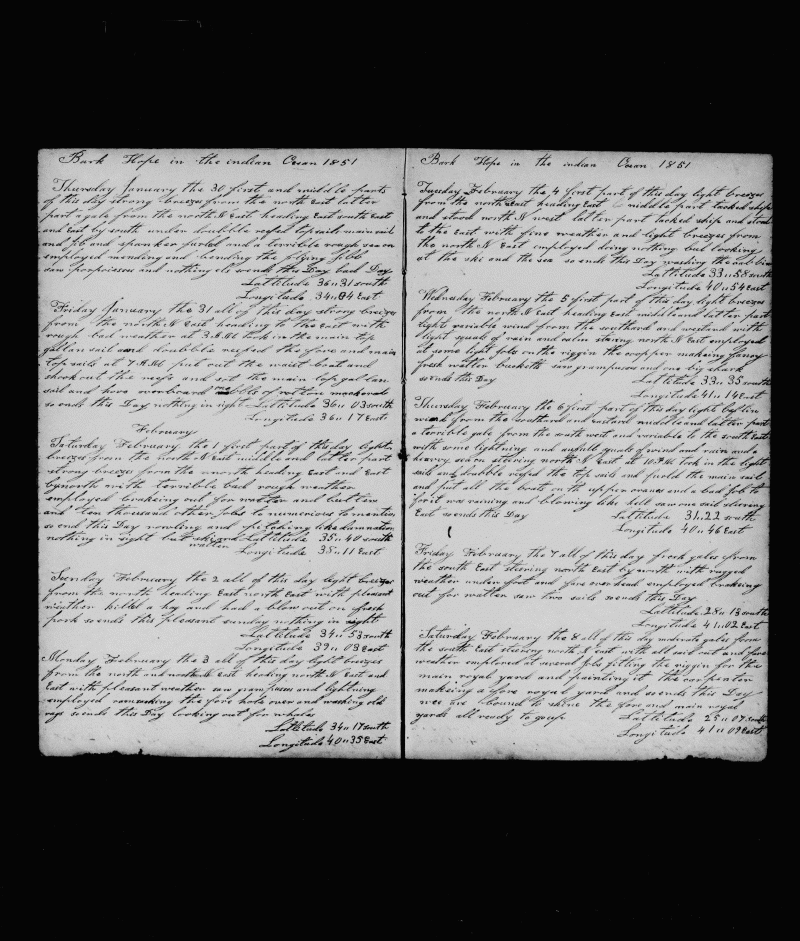 Bark Hope in the indian Ocean 1851
Thursday January the 30 first and middle parts
of this day strong breezes from the north East latter
part a gale from the north N East heading East south East
and East by south under doubble reefed topsails main sail
and jib and spanker furled and a terrible rough sea on
employed mending and bending the flying jibb
saw porpoisses and nothing els so ends this Day bad Day
Lattitude 36 " 31 south
Longitude 34 " 04 East
Friday January the 31 all of this day strong breezes
from the north N East heading to the East with
rough bad weather at 3 P.M took in the main top
gallan sail and doubble reefed the fore and main
Top sails at 7 A.M put out the waist boat and
shook out the reefs and set the main top gallan
sail and hove overboard some bbls of rotten mackerel
so ends this Day nothing in sight Lattitude 36 " 03 south
Longitude 36 " 17 East
February
Saturday February the 1 first part of this day light
breezes from the north N East middle and latter part
strong breezes from the north heading East and East
by north with terrible bad rough weather
employed brakeing out for watter and butter
and ten thousand other jobs to numerious to mention
so end this Day rowling and pitching like damnation
nothing in sight but sky and watter Lattitude 35 " 40 south
Longitude 38 " 11 East
Sunday February the 2 all of this day light breezes
from the north heading East north East with pleasant
weather killed a hog and had a blow out on fresh
pork so ends this pleasant sunday nothing in sight
Lattitude 34 " 53 south
Longitude 39 " 03 East
Monday February the 3 all of this day light breezes
from the north and north N East heading north N East and
East with pleasant weather saw grampusses and lightning
employed oversucking the fore hole over and washing old
rags so ends this Day looking out for whales
Lattitude 34 " 17 south
Longitude 40 " 35 East
Bark Hope in the indian Ocean 1851
Tuesday February the 4 first part of this day light breezes
from the north East heading East middle part tacked ship
and stood north N west latter part tacked ship and stood
to the East with fine weather and light breezes from
the north N East employed doing nothing but looking
at the ski and the sea so ends this Day washing the cabbin
Lattitude 33 " 58 south
Longitude 40 " 54 East
Wednesday February the 5 first part of this day light breezes
from the north N East heading East middle and latter part
light variable wind from the southard and westard with
light squals of rain and calm stearing north N East employed
at some light jobs on the riggin the coopper makeing fancy
fresh watter bucketts saw grampusses and one big shark
so ends this Day Lattitude 33 " 35 south
Longitude 41 " 14 East
Thursday February the 6 first part of this day light
wind from the southard and eastard middle and latter part
a terrible gale from the south west and variable to the south East
with some lightning and awfull squals of wind and rain and a
heavy sea on steering north N East at 10 P.M took in the light
sails and doubble reefed the top sails and furled the main sail
and put all the boats on the upper cranes and a bad job to
for it was raining and blowing like hell saw one sail steering
East so ends this Day Lattitude 31 " 22 south
Longitude 40 " 46 East
Friday February the 7 all of this day fresh gales from
the south East steering north East by north with rugged
weather under foot and fare overhead employed brakeing
out for watter saw two sails so ends this Day
Lattitude 28 " 13 south
Longitude 41 " 02 East
Saturday February the 8 all of this day moderate gales from
the south East steering north N east with all sail out and fare
weather employed at several jobs fitting the riggin for the
main royal yard and painting it the carpenter
makeing a fore royal yard and so ends this Day
wee are bound to shine the fore and main royal
yards all ready to go up Lattitude 25 " 07 south
Longitude 41 " 09 East